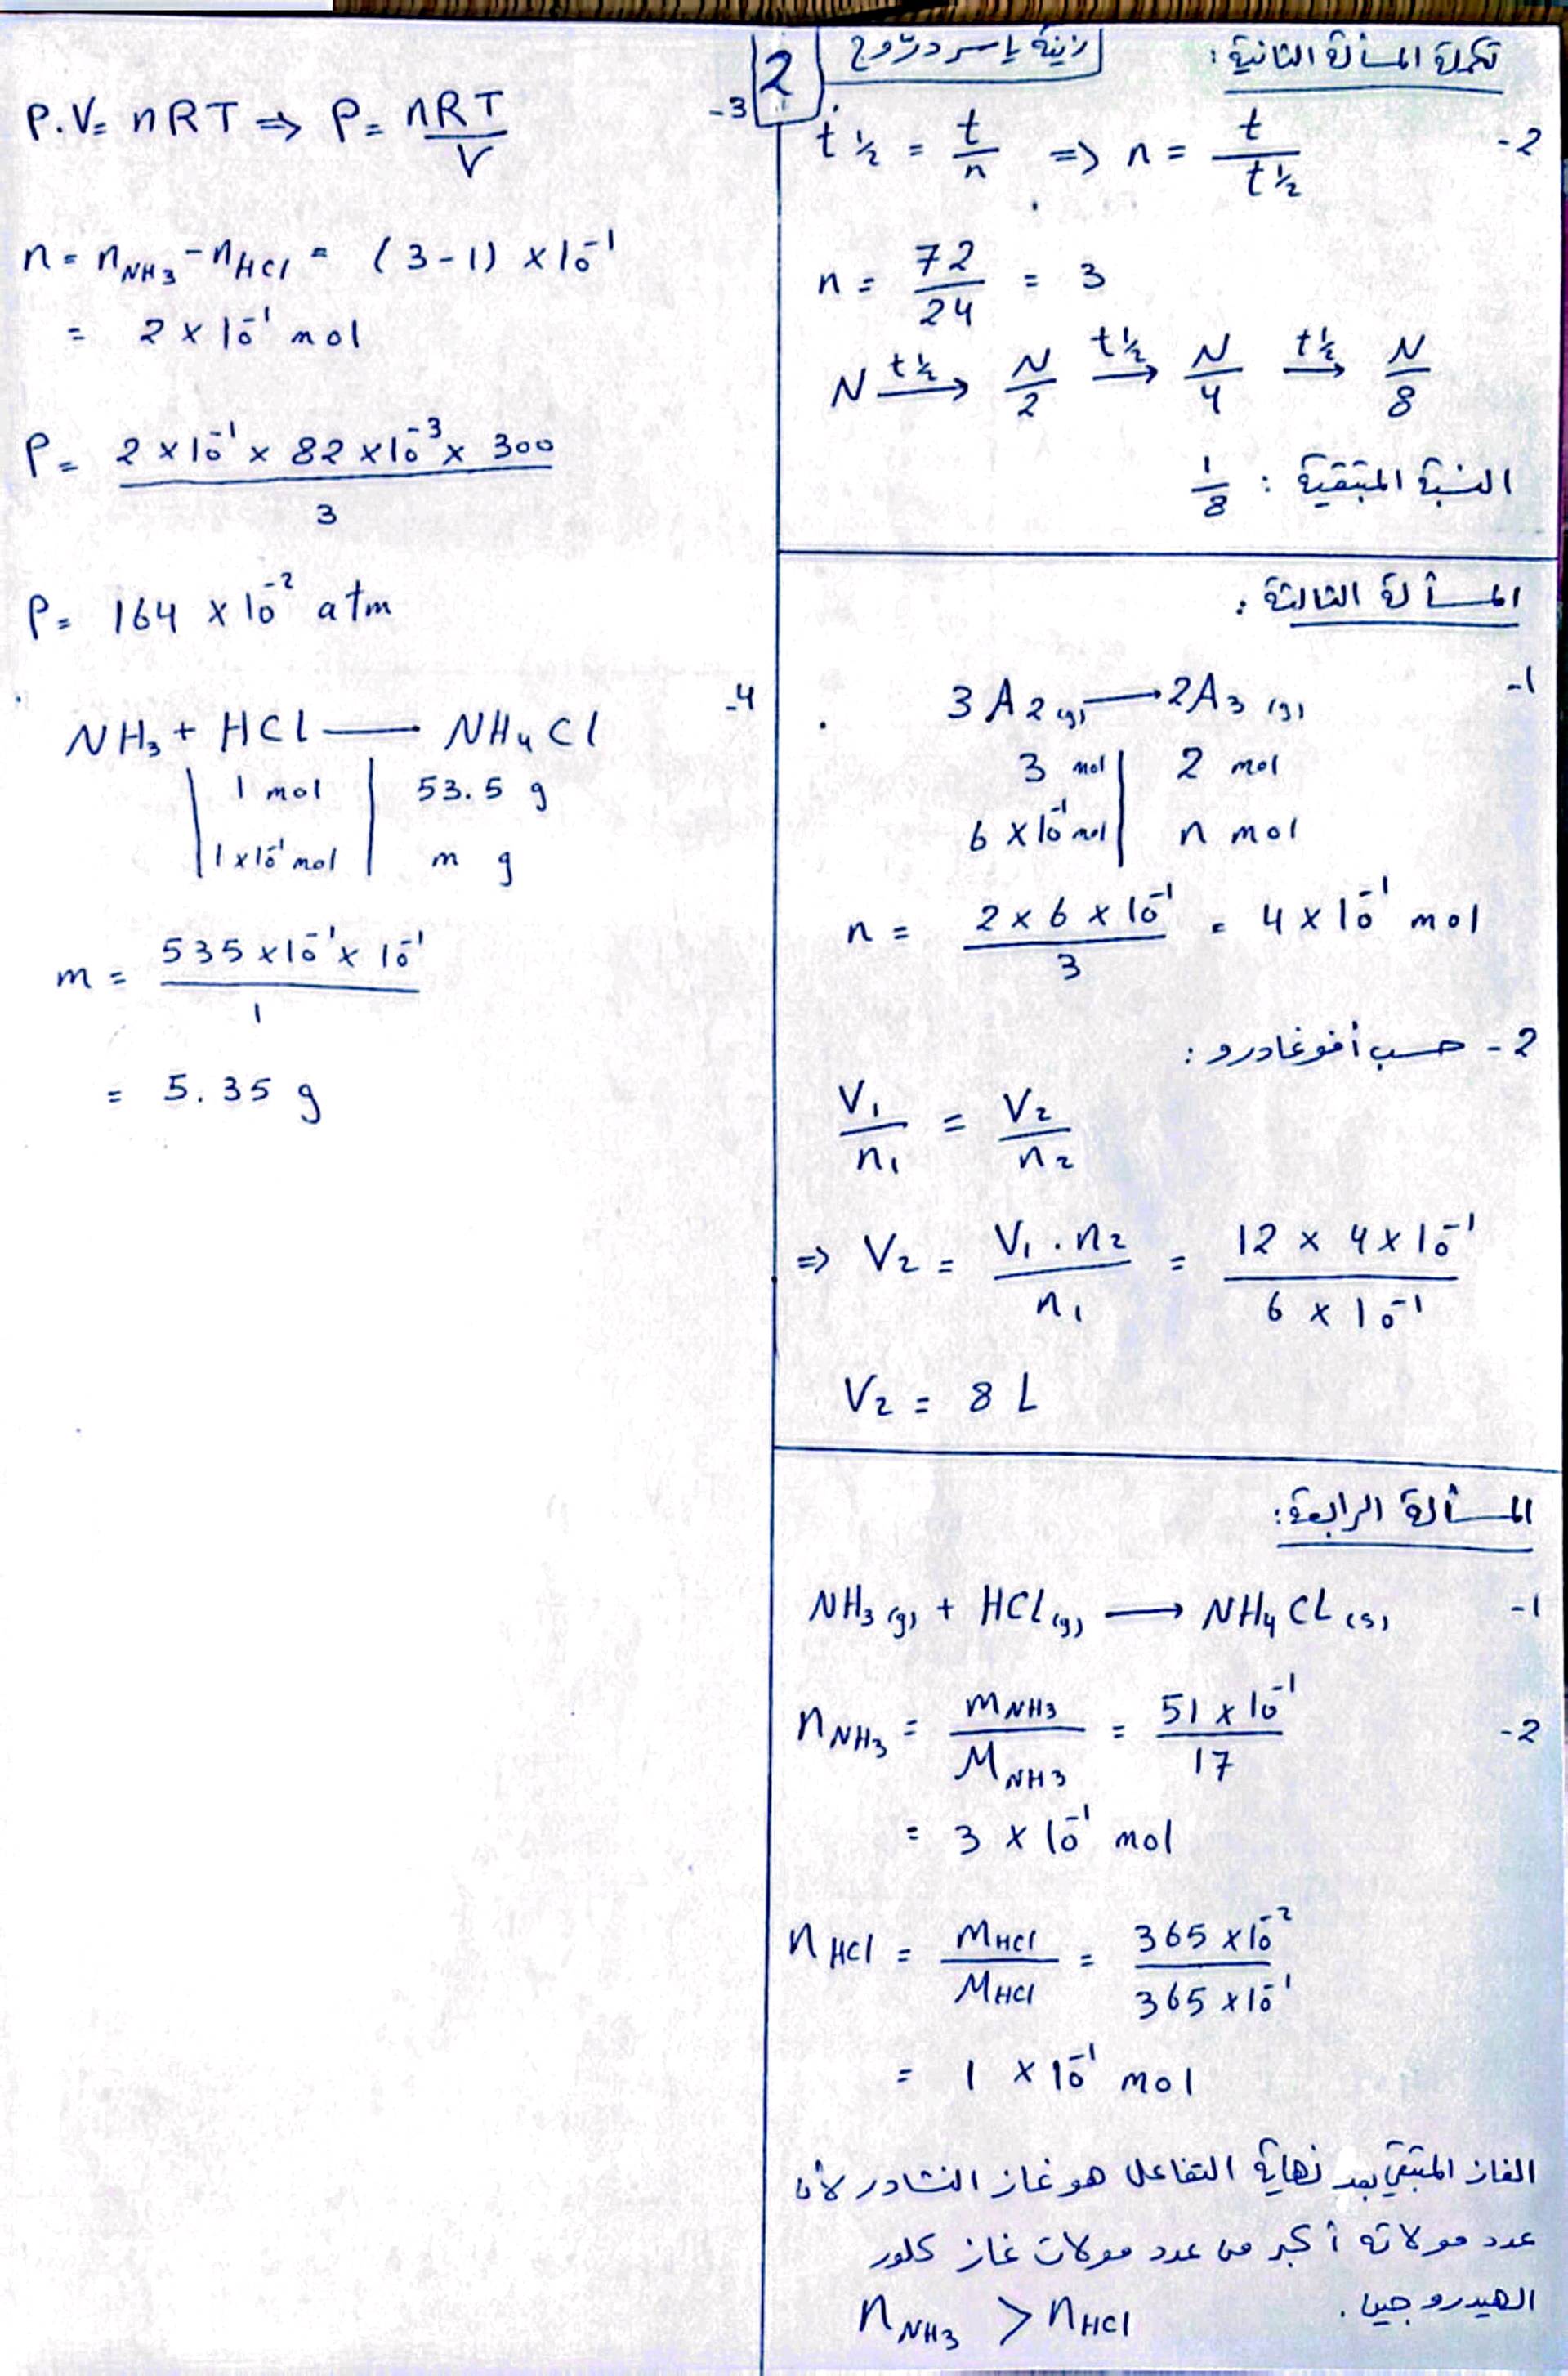 2
زينة ياسر دروج
تكملة المسألة الثانية:
-2
t½ = t/n => n = t/t½
n = 72/24 = 3
N —t½→ N/2 —t½→ N/4 —t½→ N/8
النسبة المتبقية : 1/8
المسألة الثالثة :
-1
3A₂(g) → 2A₃(g)
3 mol | 2 mol
6×10⁻¹ mol | n mol
n = 2×6×10⁻¹/3 = 4×10⁻¹ mol
2 - حسب أفوغادرو :
V₁/n₁ = V₂/n₂
=> V₂ = V₁.n₂/n₁ = 12×4×10⁻¹/6×10⁻¹
V₂ = 8 L
المسألة الرابعة:
-1
NH₃(g) + HCl(g) → NH₄Cl(s)
-2
nNH₃ = mNH₃/MNH₃ = 51×10⁻¹/17
= 3×10⁻¹ mol
nHCl = mHCl/MHCl = 365×10⁻²/365×10⁻¹
= 1×10⁻¹ mol
الغاز المتبقي بعد نهاية التفاعل هو غاز النشادر لأن
عدد مولاته أكبر من عدد مولات غاز كلور
الهيدروجين.
nNH₃ > nHCl
-3
P.V = nRT => P = nRT/V
n = nNH₃ - nHCl = (3-1)×10⁻¹
= 2×10⁻¹ mol
P = 2×10⁻¹×82×10⁻³×300/3
P = 164×10⁻² atm
-4
NH₃ + HCl — NH₄Cl
| 1 mol | 53.5 g
| 1×10⁻¹ mol | m g
m = 535×10⁻¹×10⁻¹/1
= 5.35 g